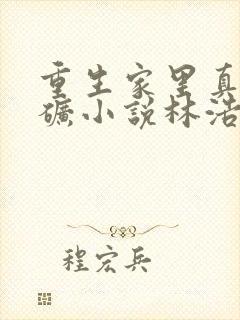 重生家里真
礦小說林浩
程宏兵